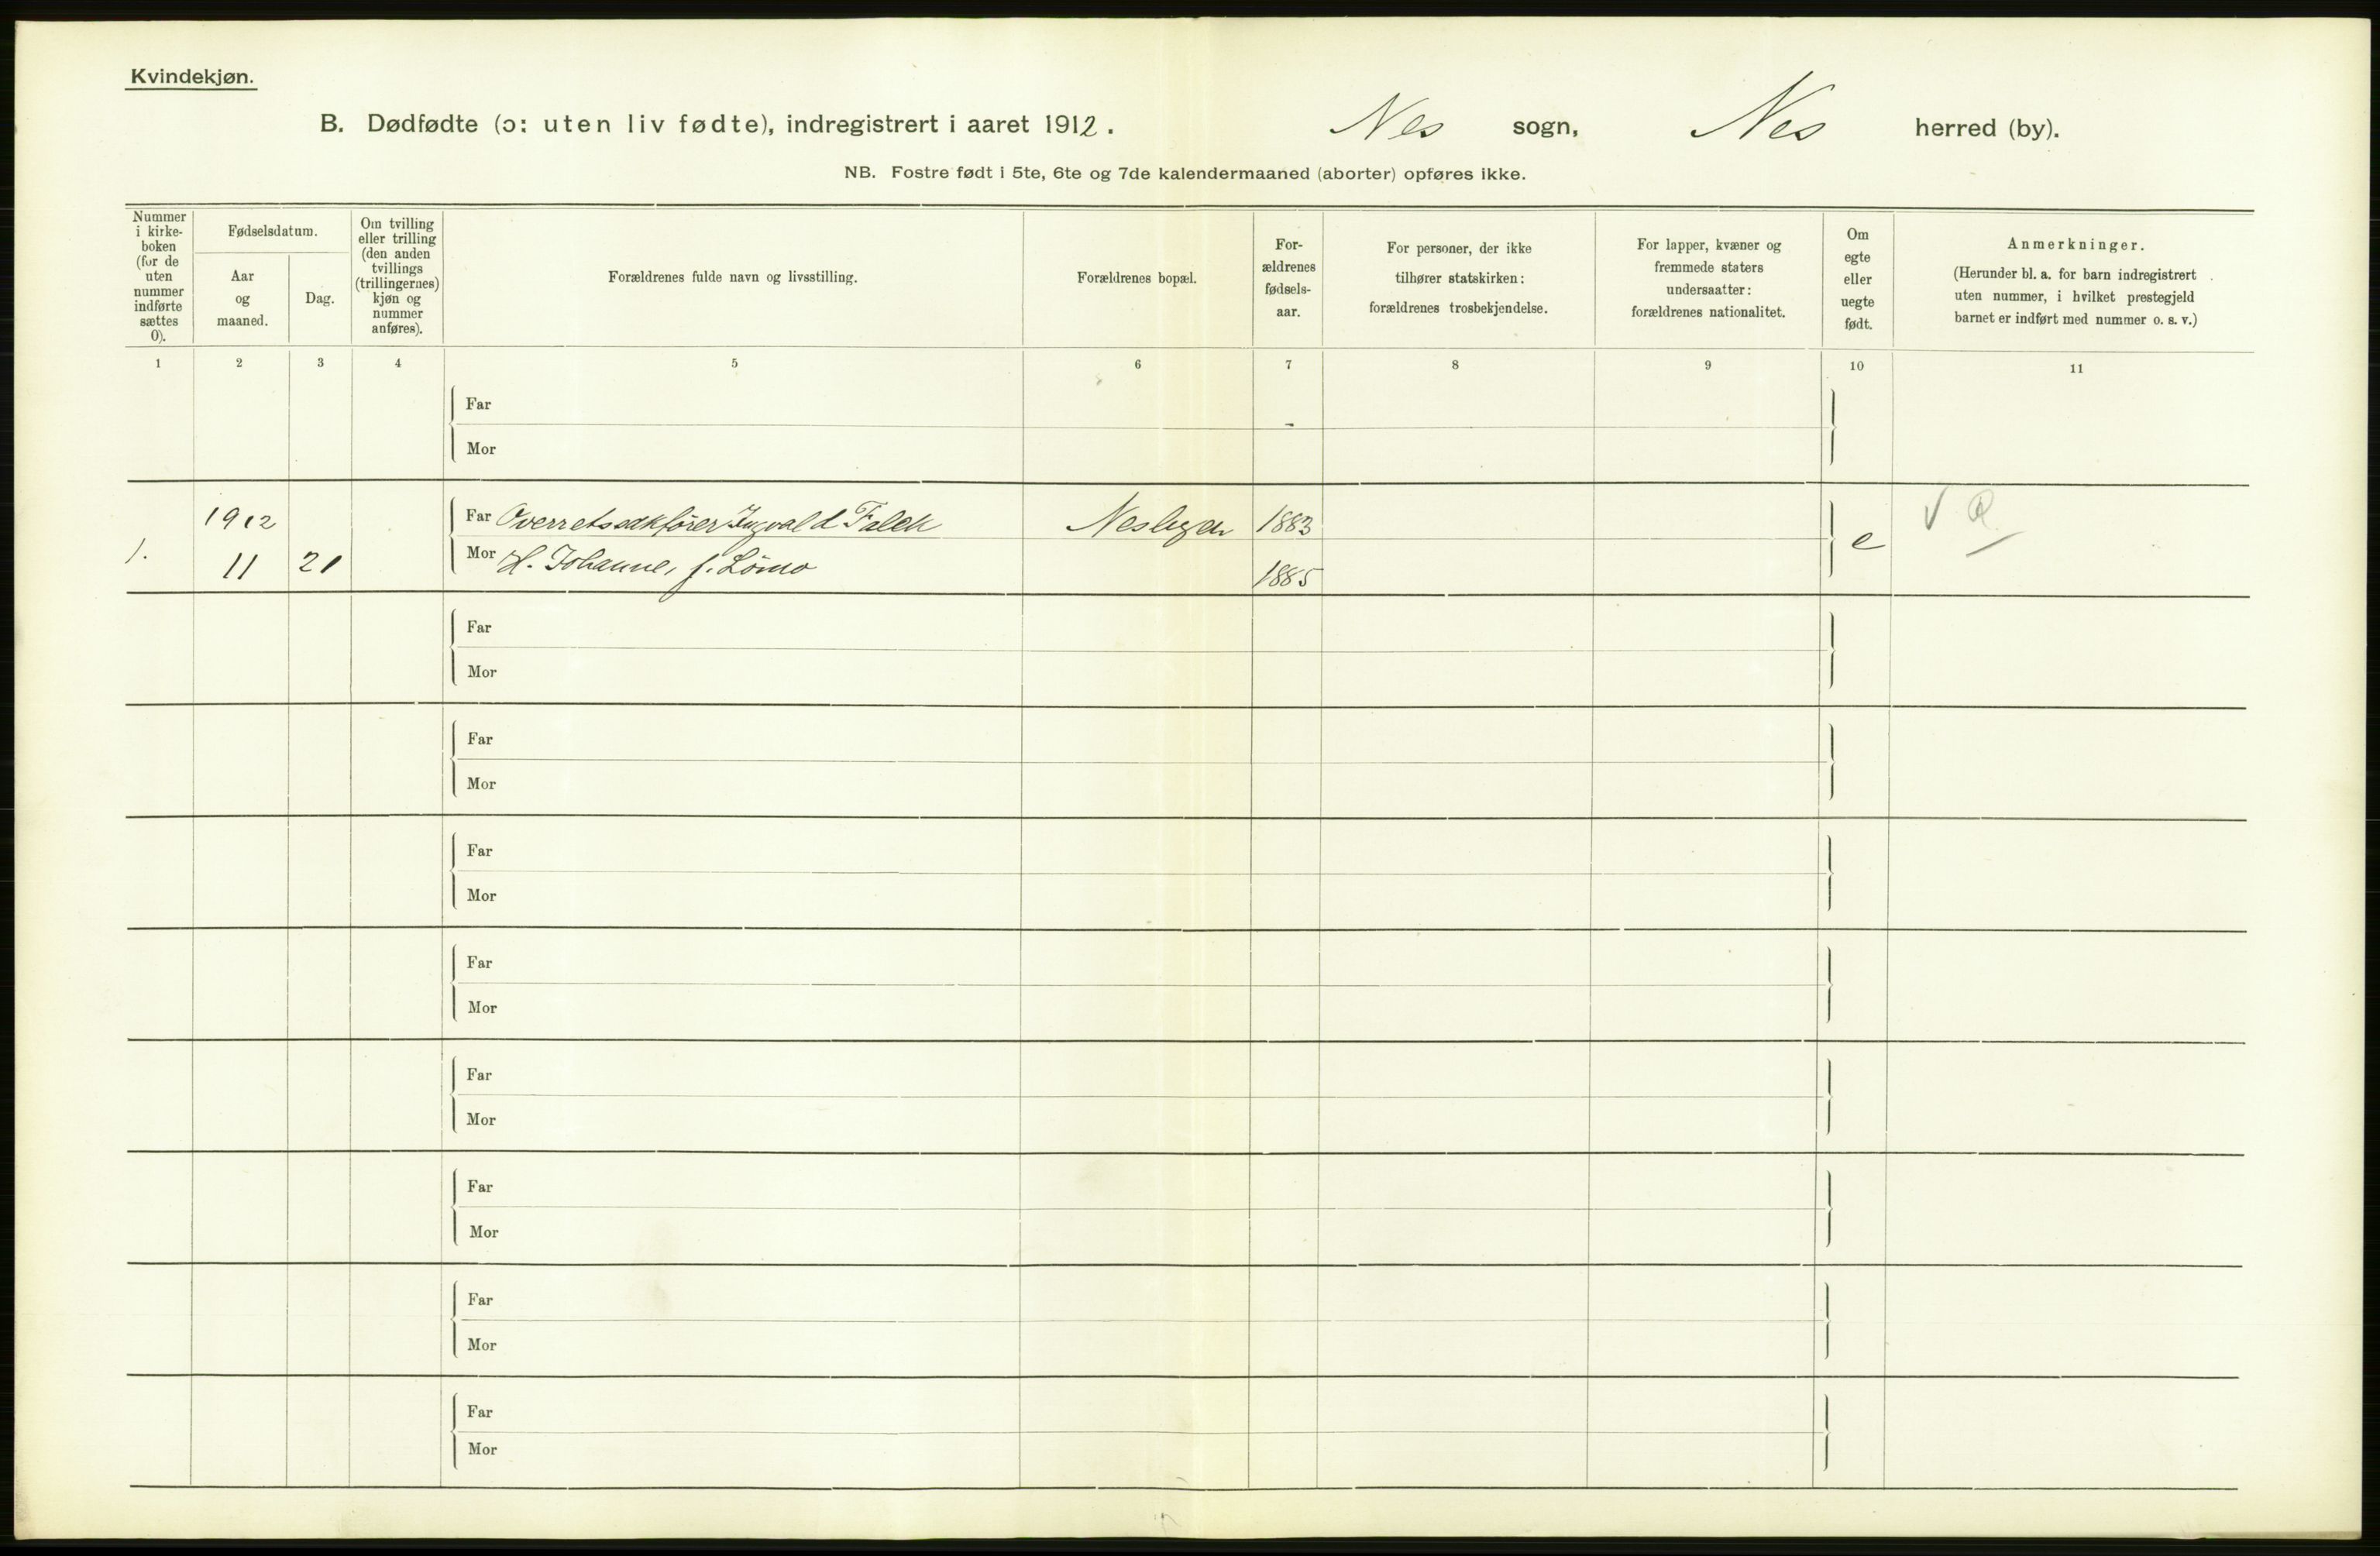 Kvindekjøn.
B. Dødfødte (ɔ: uten liv fødte), indregistrert i aaret 1912. Nes sogn, Nes herred (by).
NB. Fostre født i 5te, 6te og 7de kalendermaaned (aborter) opføres ikke.
Nummer
i kirke-
boken
(for de
uten
nummer
indførte
sættes
0).
Fødselsdatum.
Aar
og
maaned.
Dag.
Om tvilling
eller trilling
(den anden
tvillings
(trillingernes)
kjøn og
nummer
anføres).
Forældrenes fulde navn og livsstilling.
Forældrenes bopæl.
For-
ældrenes
fødsels-
aar.
For personer, der ikke
tilhører statskirken:
forældrenes trosbekjendelse.
For lapper, kvæner og
fremmede staters
undersaatter:
forældrenes nationalitet.
Om
egte
eller
uegte
født.
Anmerkninger.
(Herunder bl. a. for barn indregistrert
uten nummer, i hvilket prestegjeld
barnet er indført med nummer o. s. v.)
1 2 3 4 5 6 7 8 9 10 11
Far
Mor
1912 Far Overretssakfører Ingvald Falck Nesbyen 1883
1. 11 21 Mor H. Johanne, f. Lömo 1885 e
Far
Mor
Far
Mor
Far
Mor
Far
Mor
Far
Mor
Far
Mor
Far
Mor
Far
Mor